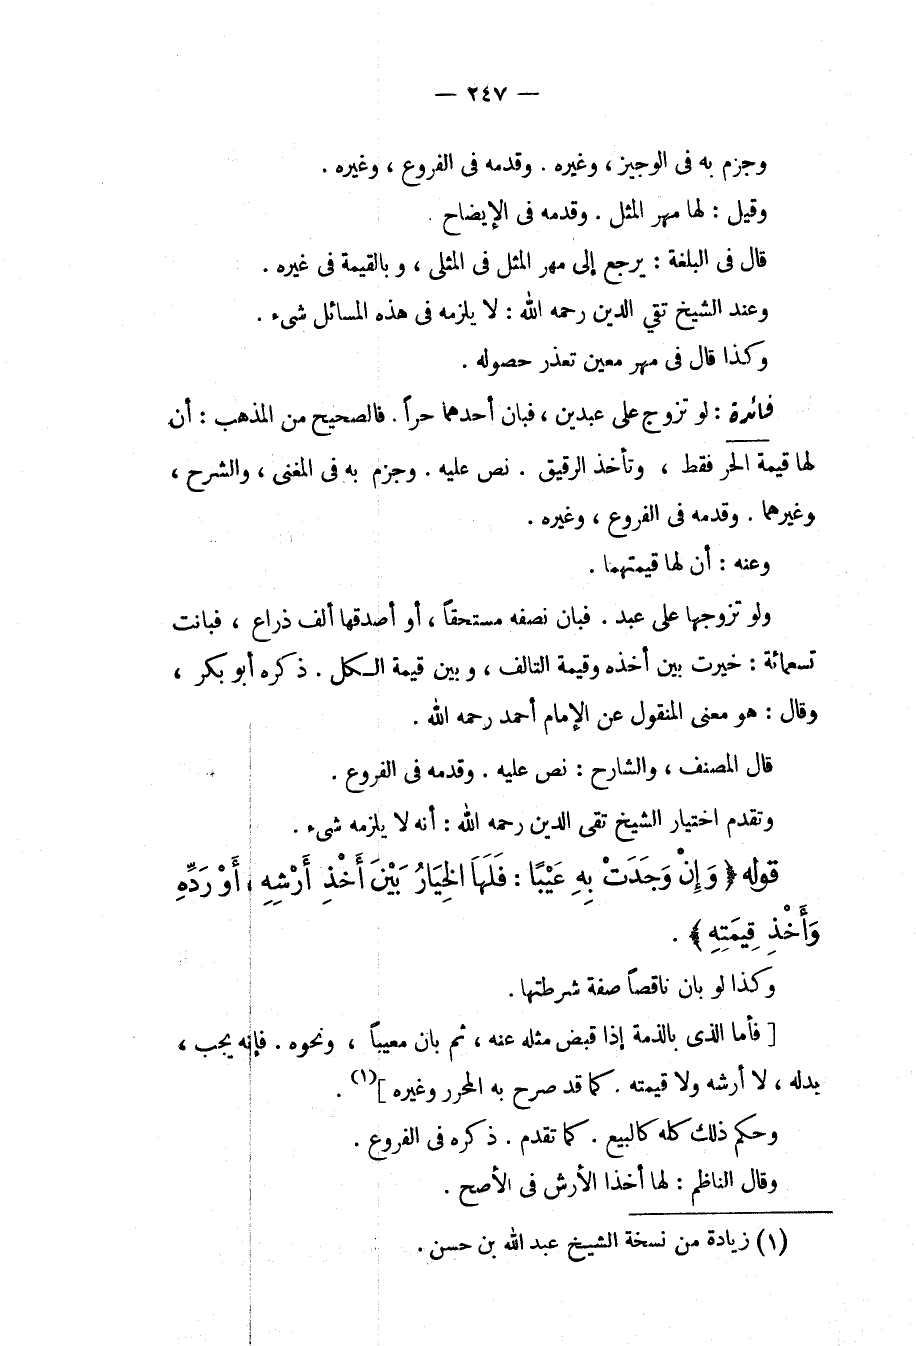 — ٢٤٧ —
وجزم به فى الوجيز ، وغيره . وقدمه فى الفروع ، وغيره .
وقيل : لها مهر المثل . وقدمه فى الإيضاح .
قال فى البلغة : يرجع إلى مهر المثل فى المثلى ، وبالقيمة فى غيره .
وعند الشيخ تقي الدين رحمه الله : لا يلزمه فى هذه المسائل شىء .
وكذا قال فى مهر معين تعذر حصوله .
فائدة : لو تزوج على عبدين ، فبان أحدهما حراً . فالصحيح من المذهب : أن
لها قيمة الحر فقط ، وتأخذ الرقيق . نص عليه . وجزم به فى المغنى ، والشرح ،
وغيرهما . وقدمه فى الفروع ، وغيره .
وعنه : أن لها قيمتهما .
ولو تزوجها على عبد . فبان نصفه مستحقاً ، أو أصدقها ألف ذراع ، فبانت
تسعمائة : خيرت بين أخذه وقيمة التالف ، وبين قيمة الـكل . ذكره أبو بكر ،
وقال : هو معنى المنقول عن الإمام أحمد رحمه الله .
قال المصنف ، والشارح : نص عليه . وقدمه فى الفروع .
وتقدم اختيار الشيخ تقى الدين رحمه الله : أنه لا يلزمه شىء .
قوله ﴿ وَإِنْ وَجَدَتْ بِهِ عَيْبًا : فَلَهَا الْخِيَارُ بَيْنَ أَخْذِ أَرْشِهِ ، أَوْ رَدِّهِ
وَأَخْذِ قِيمَتِهِ ﴾ .
وكذا لو بان ناقصاً صفة شرطتها .
[ فأما الذى بالذمة إذا قبض مثله عنه ، ثم بان معيباً ، ونحوه . فإنه يجب ،
بدله ، لا أرشه ولا قيمته . كما قد صرح به المحرر وغيره ](١) .
وحكم ذلك كله كالبيع . كما تقدم . ذكره فى الفروع .
وقال الناظم : لها أخذا الأرش فى الأصح .
(١) زيادة من نسخة الشيخ عبد الله بن حسن .